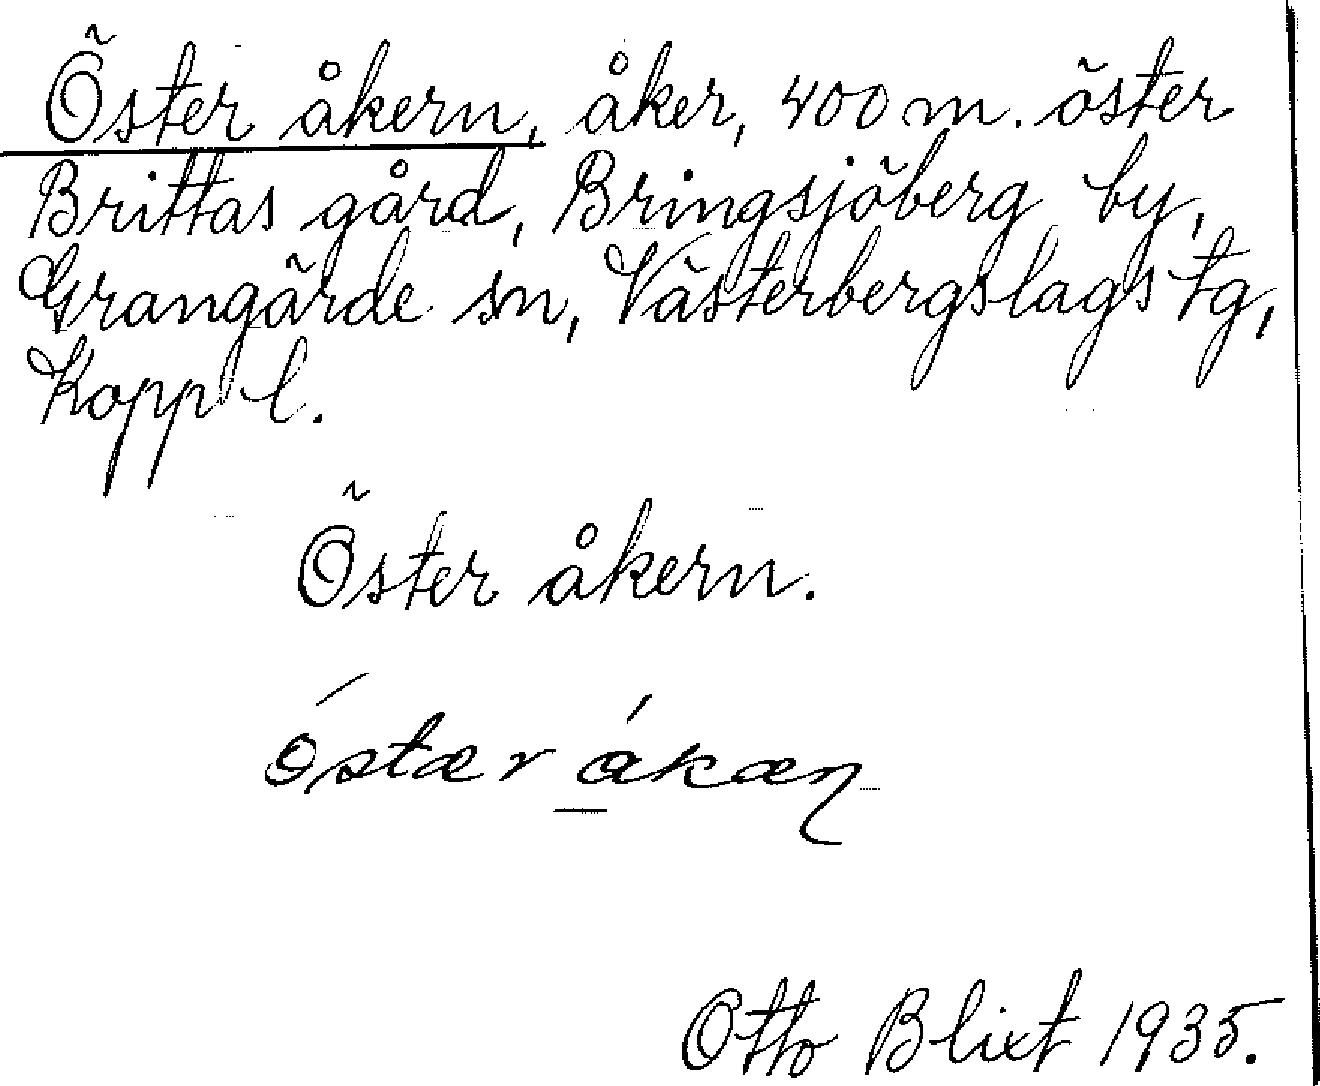 Öster åkern, åker, 400 m. öster
Brittas gård, Bringsjöberg by,
Grangärde sn, Västerbergslags tg,
Kopp l.
Öster åkern.
Otto Blixt 1935.